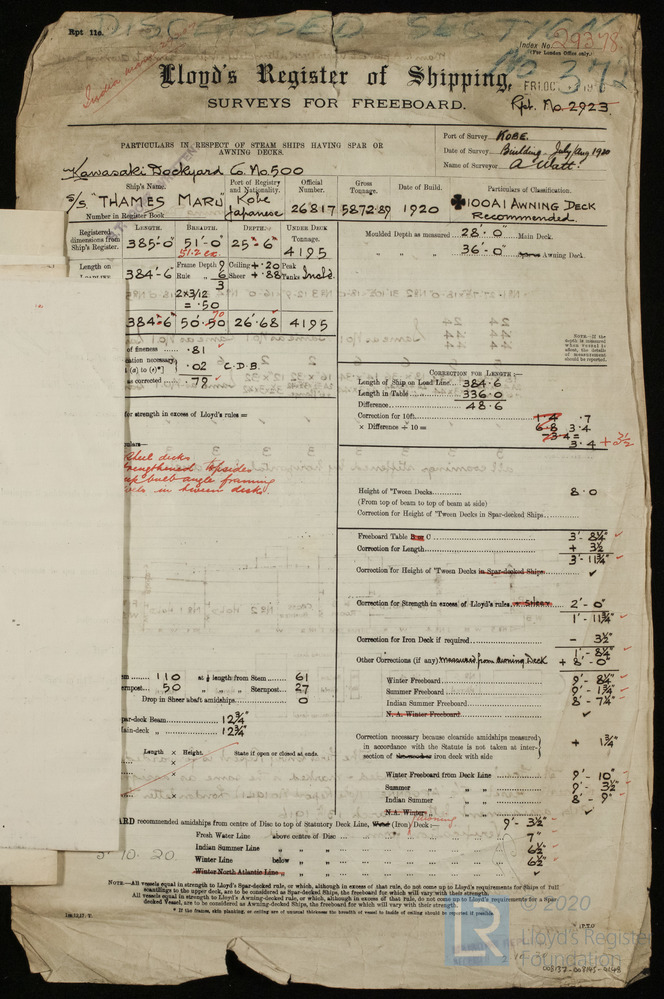 Rpt 11c.
DISCLOSED SECTION
Index No. 29378
(For London Office only.)
No 372
Lloyd's Register of Shipping.
FRI. OCT
SURVEYS FOR FREEBOARD.
Rpt. No. 2923.
PARTICULARS IN RESPECT OF STEAM SHIPS HAVING SPAR OR AWNING DECKS.
Port of Survey KOBE.
Date of Survey Building - July/Aug 1920
Name of Surveyor A Watt.
Kawasaki Dockyard Co. No. 500
Ship's Name. Port of Registry and Nationality. Official Number. Gross Tonnage. Date of Build. Particulars of Classification.
S/S. "THAMES MARU" Kobe Japanese 26817 5872.89 1920 ✠100A1 AWNING DECK Recommended.
Number in Register Book
Registered dimensions from Ship's Register. LENGTH. BREADTH. DEPTH. UNDER DECK Tonnage.
385'-0" 51'-0" 25'-6" 4195
51.2 ex.
Moulded Depth as measured 28'-0" Main Deck.
" " " 36'-0" Awning Deck.
Length on LOADLINE 384'-6" Frame Depth 9 Rule " 6 3 Ceiling + .20 Sheer + .88 Peak Tanks Incld.
2x3/12 = .50
384-6" 50.50 26.68 4195
NOTE.—If the depth is measured when vessel is afloat, the details of measurement should be reported.
of fineness .81
cation necessary (a) to (e)*] .02 C.D.B.
as corrected .79
CORRECTION FOR LENGTH:—
Length of Ship on Load Line 384.6
Length in Table 336.0
Difference 48.6
Correction for 10ft. 1.4 .7
× Difference ÷ 10 = 6.8 3.4
3.4 + 3½
for strength in excess of Lloyd's rules =
culars—
Steel decks
Strengthened topsides
bulb angle framing
in tween decks.
Height of 'Tween Decks 8.0
(From top of beam to top of beam at side)
Correction for Height of 'Tween Decks in Spar-decked Ships
Freeboard Table B or C 3'-8¼"
Correction for Length + 3½
3'-11¾"
Correction for Height of 'Tween Decks in Spar-decked Ships ✓
Correction for Strength in excess of Lloyd's rules 2'-0"
1'-11¾"
Correction for Iron Deck if required - 3½"
1'-8¼"
Other Corrections (if any) measured from Awning Deck + 8'-0"
Winter Freeboard 9'-8¼"
Summer Freeboard 9'-1¾"
Indian Summer Freeboard 8'-7¼"
N. A. Winter Freeboard ✓
110 at ⅛ length from Stem 61
ernpost 50 " " " Sternpost 27
Drop in Sheer abaft amidships 0
par-deck Beam 12¾"
ain-deck " 12¾"
Length × Height. State if open or closed at ends.
Correction necessary because clearside amidships measured in accordance with the Statute is not taken at intersection of iron deck with side + 1¾"
Winter Freeboard from Deck Line 9'-10"
Summer " " " 9'-3½"
Indian Summer " " 8'-9"
N.A. Winter " ✓
ARD recommended amidships from centre of Disc to top of Statutory Deck Line, Wood (Iron) Deck:— 9'-3½"
Awning
Fresh Water Line above centre of Disc 7"
Indian Summer Line " " " 6½"
Winter Line below " " 6½"
Winter North Atlantic Line " " " ✓
10. 20.
NOTE—All vessels equal in strength to Lloyd's Spar-decked rule, or which, although in excess of that rule, do not come up to Lloyd's requirements for Ships of full scantlings to the upper deck, are to be considered as Spar-decked Ships, the freeboard for which will vary with their strength.
All vessels equal in strength to Lloyd's Awning-decked rule, or which, although in excess of that rule, do not come up to Lloyd's requirements for a Spar-decked Vessel, are to be considered as Awning-decked Ships, the freeboard for which will vary with their strength.
* If the frames, skin planking, or ceiling are of unusual thickness the breadth of vessel to inside of ceiling should be reported if possible.
[P.T.O
LR
© 2020
Lloyd's Register
Foundation
008137-008145-0248